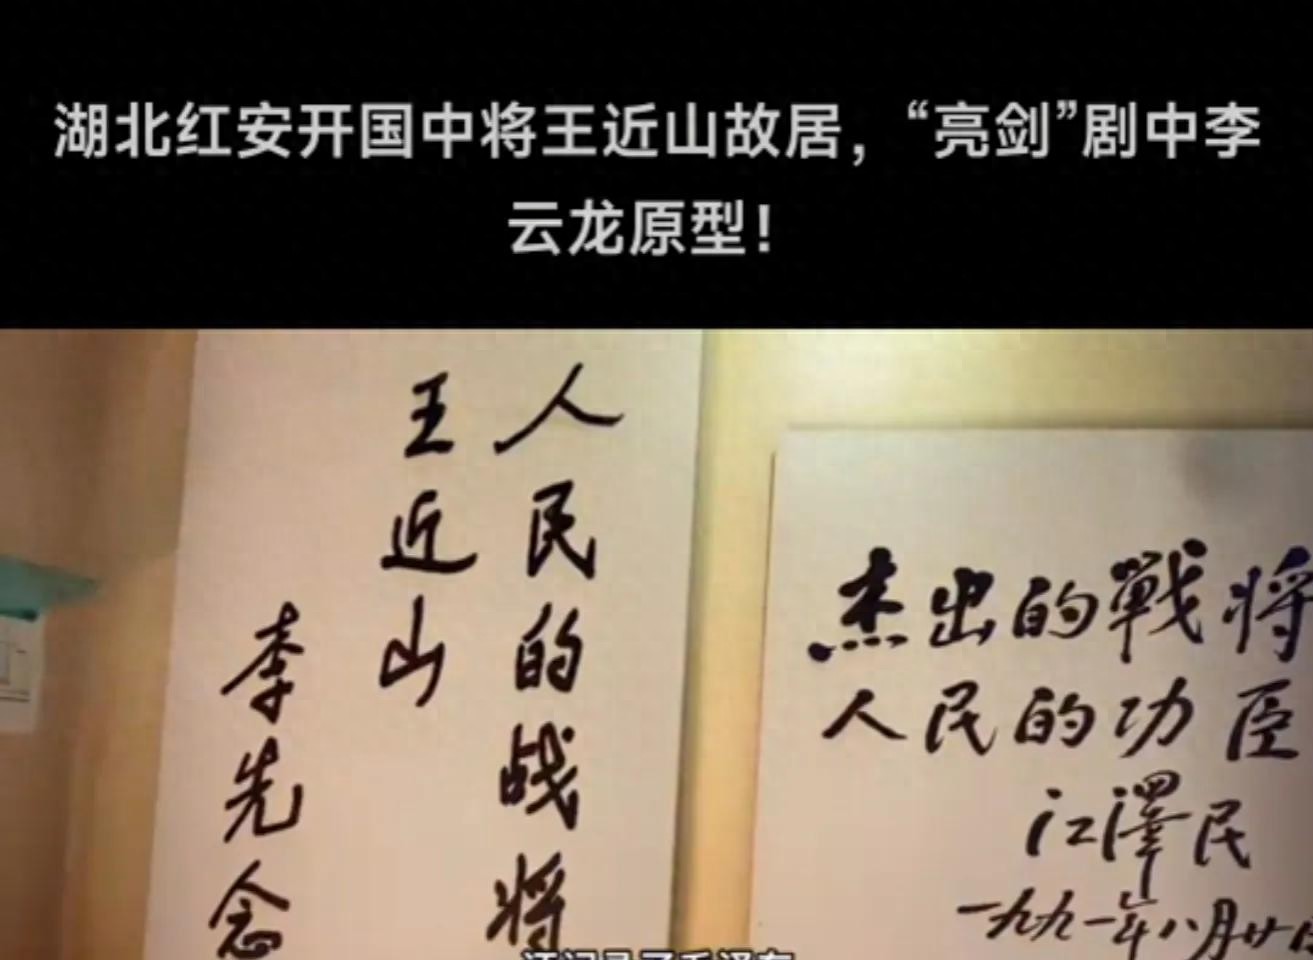 湖北红安开国中将王近山故居，“亮剑”剧中李
云龙原型！
人民的战将
王近山
李先念
杰出的戰将
人民的功臣
江澤民
一九九一年八月廿